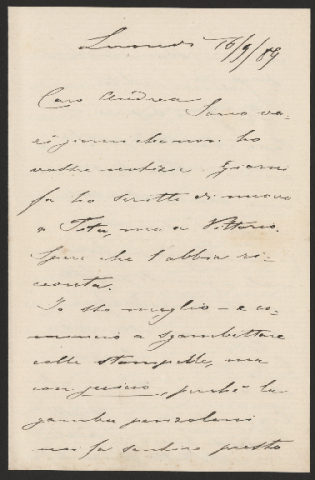 16/9/89
Caro Andrea Sono va-
ri giorni che non ho
vostre notizie. Giorni
fa ho scritto di nuovo
a Teta, ma a Vittorio.
Spero che l'abbia ri-
cevuta.
Io sto meglio - e co-
mincio a sgambettare
colle stampelle, ma
con giudizio, perchè la
gamba penzoloni
mi fa sentire presto